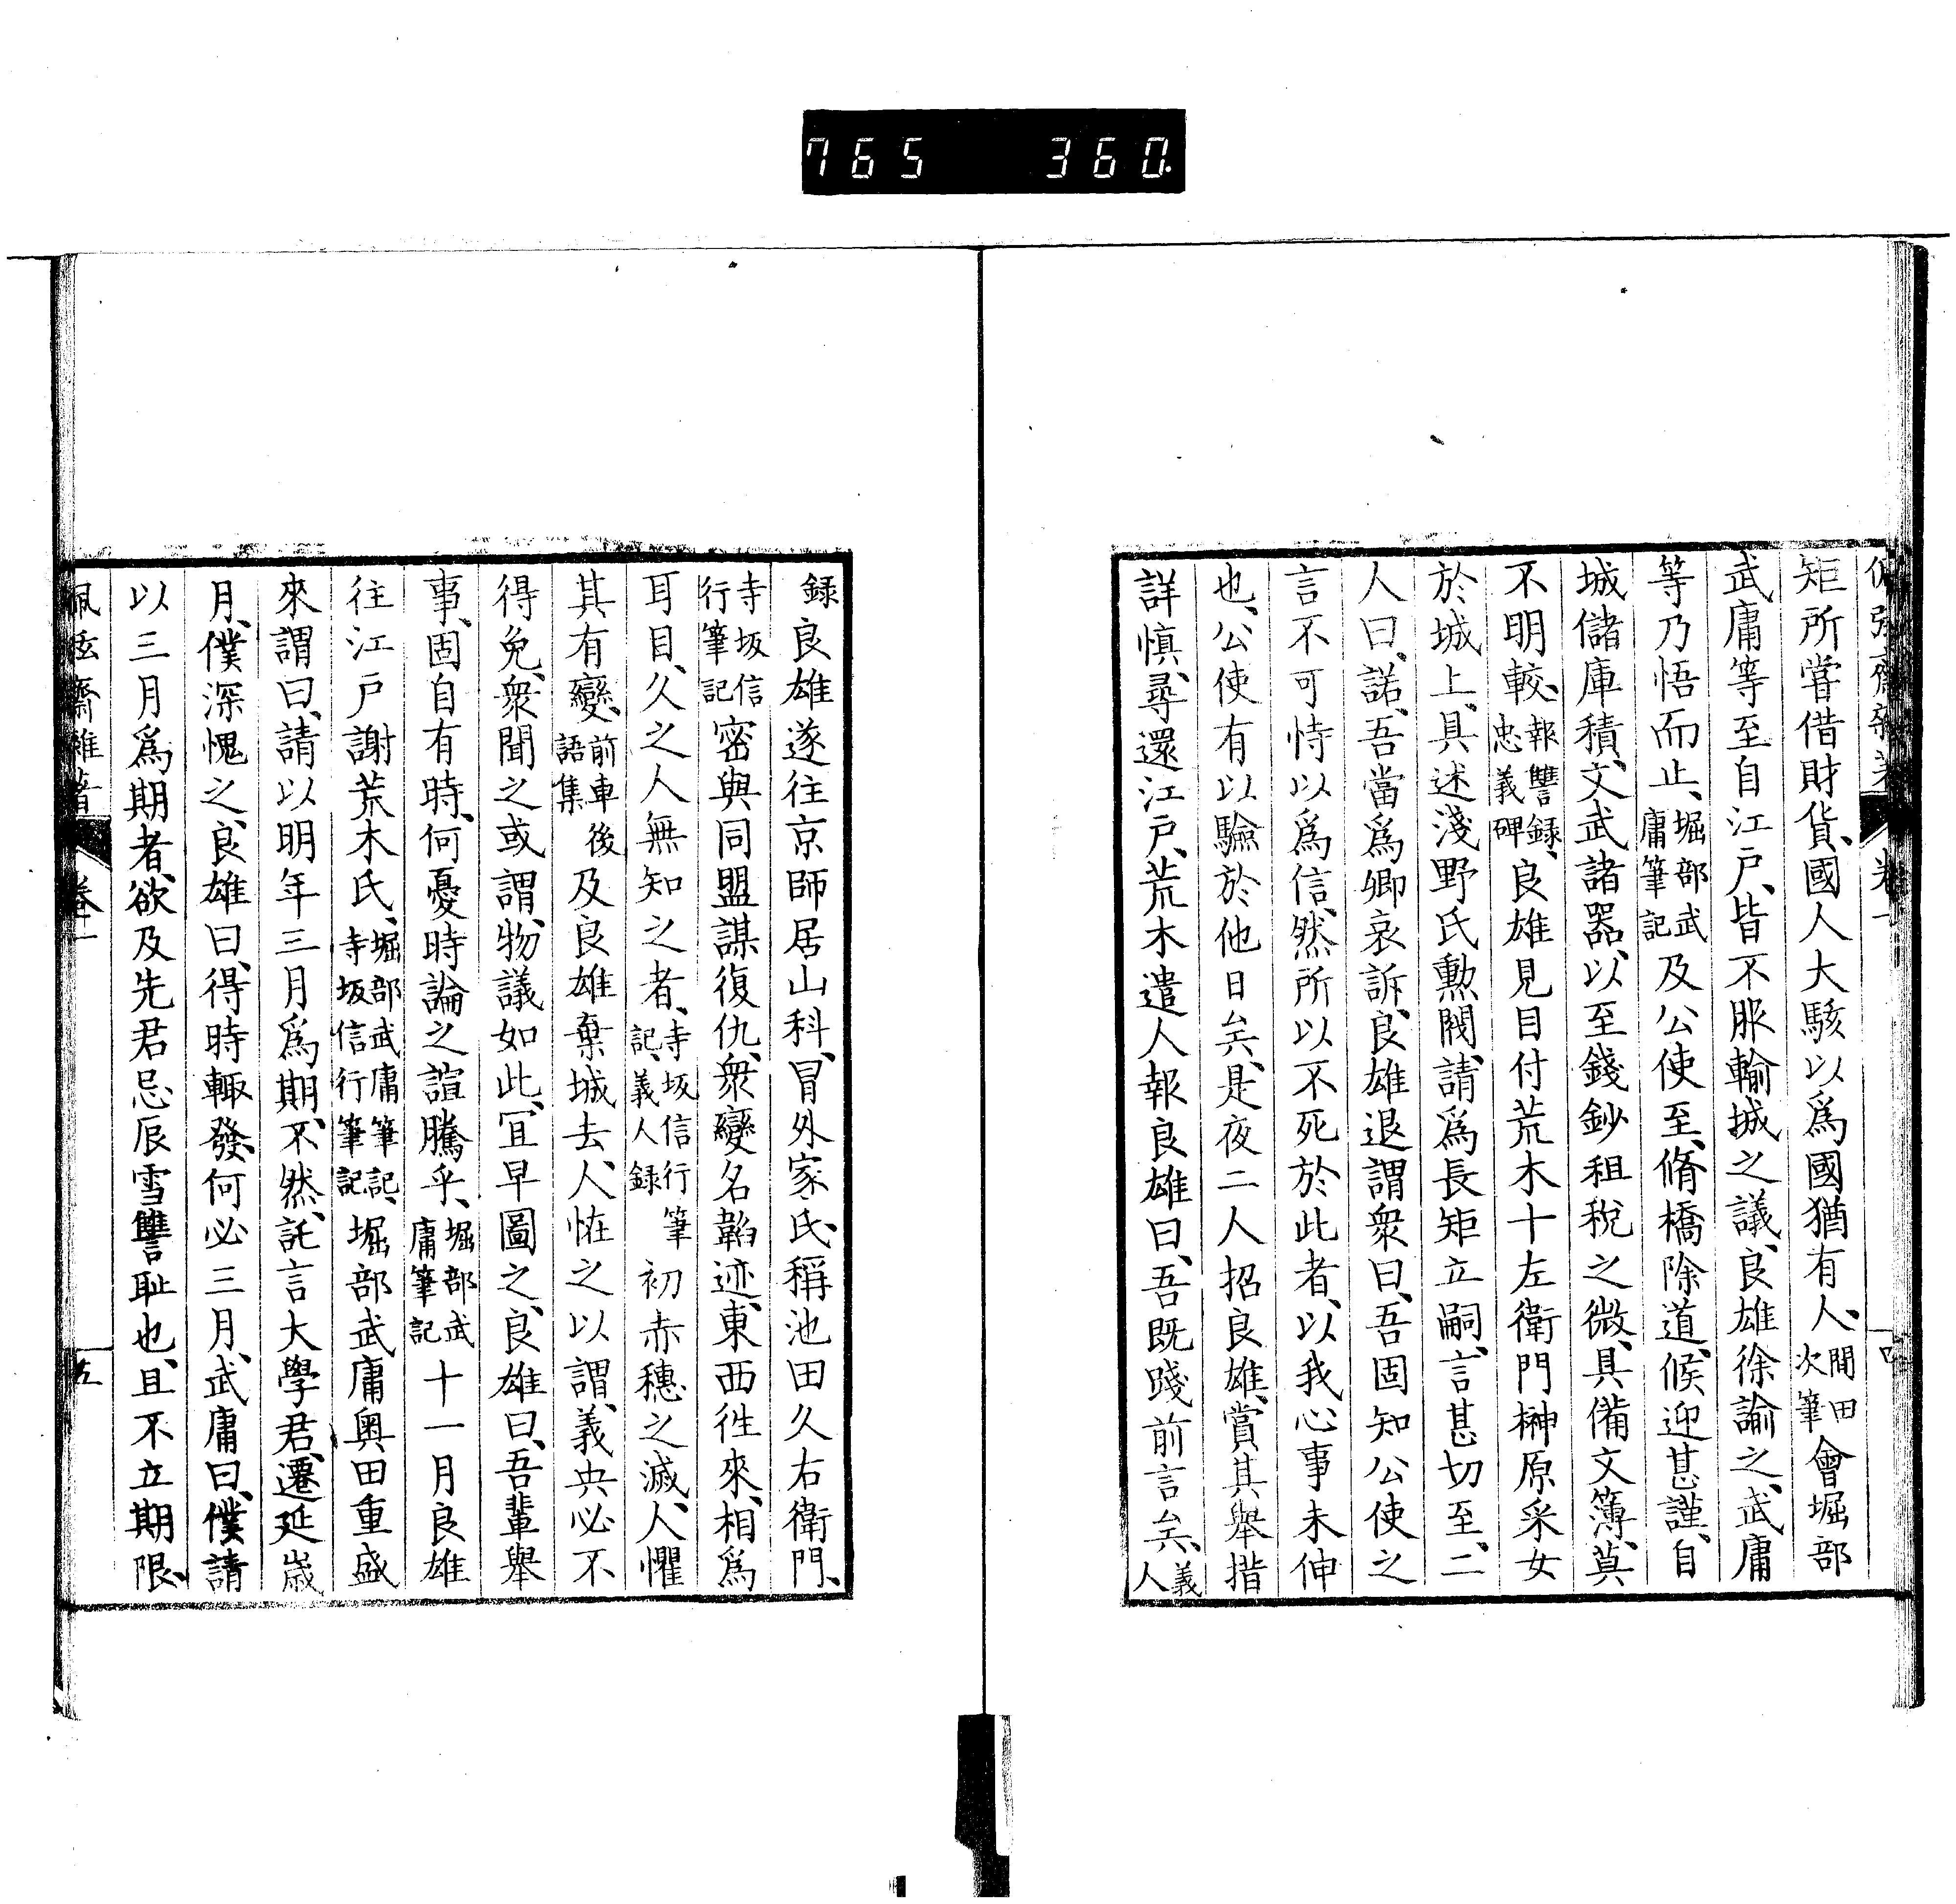 765 360.
矩所嘗借財貨、國人大駭以爲國猶有人、間田次筆會堀部
武庸等至自江戸、皆不服輸城之議、良雄徐諭之、武庸
等乃悟而止、堀部武庸筆記及公使至、脩橋除道、候迎甚謹、自
城儲庫積、文武諸器、以至錢鈔租税之微、具備文簿、莫
不明較、報讐録、忠義碑良雄見目付荒木十左衛門榊原采女
於城上、具述淺野氏勲閥、請爲長矩立嗣、言甚切至、二
人曰、諾、吾當爲卿哀訴、良雄退謂衆曰、吾固知公使之
言不可恃以爲信、然所以不死於此者、以我心事未伸
也、公使有以驗於他日矣、是夜二人招良雄、賞其舉措
詳慎、尋還江戸、荒木遣人報良雄曰、吾既踐前言矣、義人
録良雄遂往京師居山科、冒外家氏、稱池田久右衛門、
寺坂信行筆記密與同盟謀復仇、衆變名韜迹、東西往來、相爲
耳目、久之人無知之者、寺坂信行筆記、義人録初赤穗之滅、人懼
其有變、前車後語集及良雄棄城去、人恠之以謂、義央必不
得免、衆聞之或謂、物議如此、冝早圖之、良雄曰、吾輩舉
事、固自有時、何憂時論之諠騰乎、堀部武庸筆記十一月良雄
往江戸謝荒木氏、堀部武庸筆記、寺坂信行筆記堀部武庸奥田重盛
來謂曰、請以明年三月爲期、不然、託言大學君、遷延歳
月、僕深愧之、良雄曰、得時輙發、何必三月、武庸曰、僕請
以三月爲期者、欲及先君忌辰雪讐耻也、且不立期限、
佩弦齋雜著 卷一 五